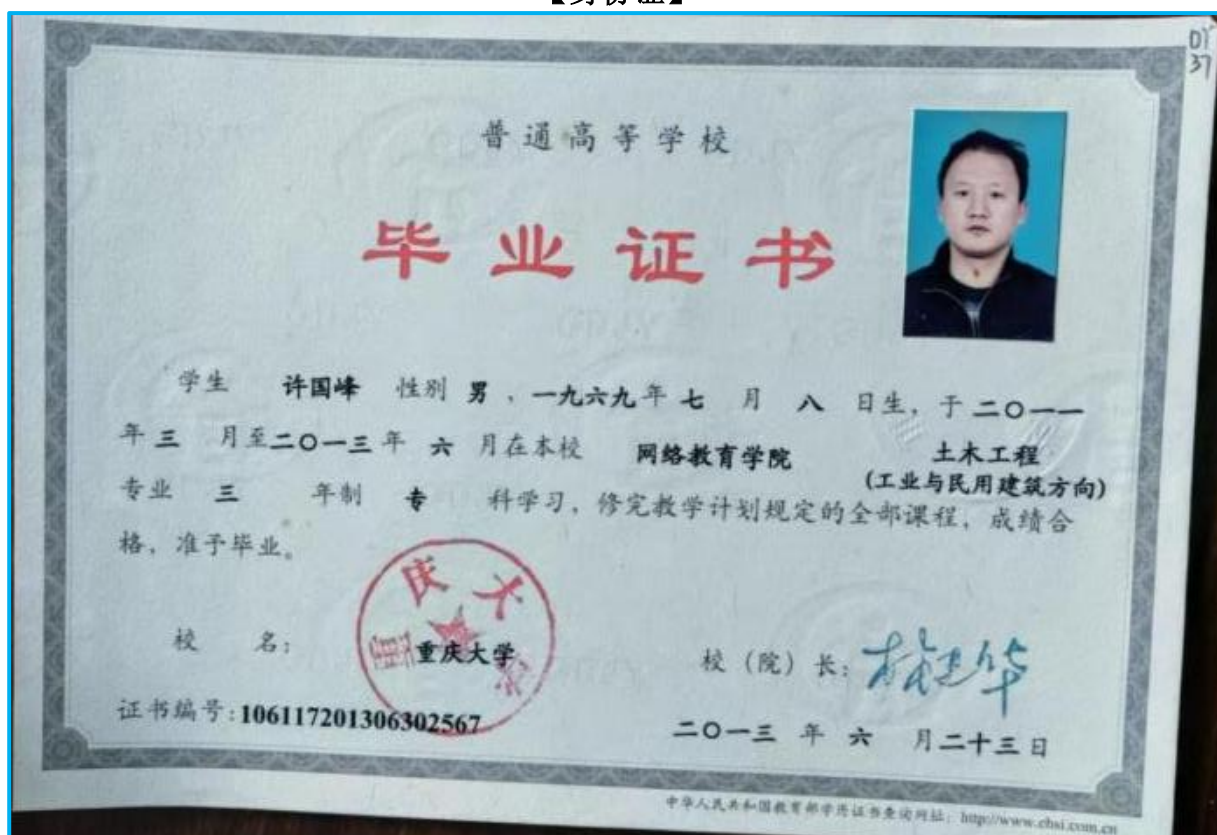 【身份证】
01
37
普通高等学校
毕业证书
学生 许国峰 性别 男 ,一九六九年 七 月 八 日生, 于 二〇一一
年 三 月至二〇一三年 六 月在本校 网络教育学院 土木工程
(工业与民用建筑方向)
专业 三 年制 专 科学习, 修完教学计划规定的全部课程, 成绩合
格, 准予毕业。
重庆大学
校 名: 重庆大学 校(院)长:
证书编号:106117201306302567 二〇一三 年 六 月二十三日
中华人民共和国教育部学历证书查询网址: http://www.chsi.com.cn